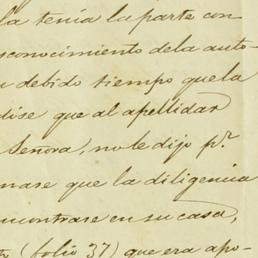 la tenía la parte con
sconocimiento dela auto-
debido tiempo que la
dióse que al apellidar
Señora, nole dijo p.r
nase que la diligencia
ncontrase en su casa,
(folio 37) que era apo-